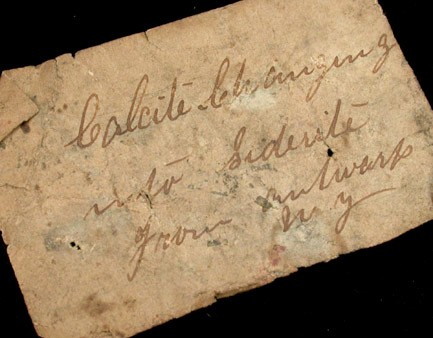 Calcite Changing
into Siderite
from antwarp
N Y